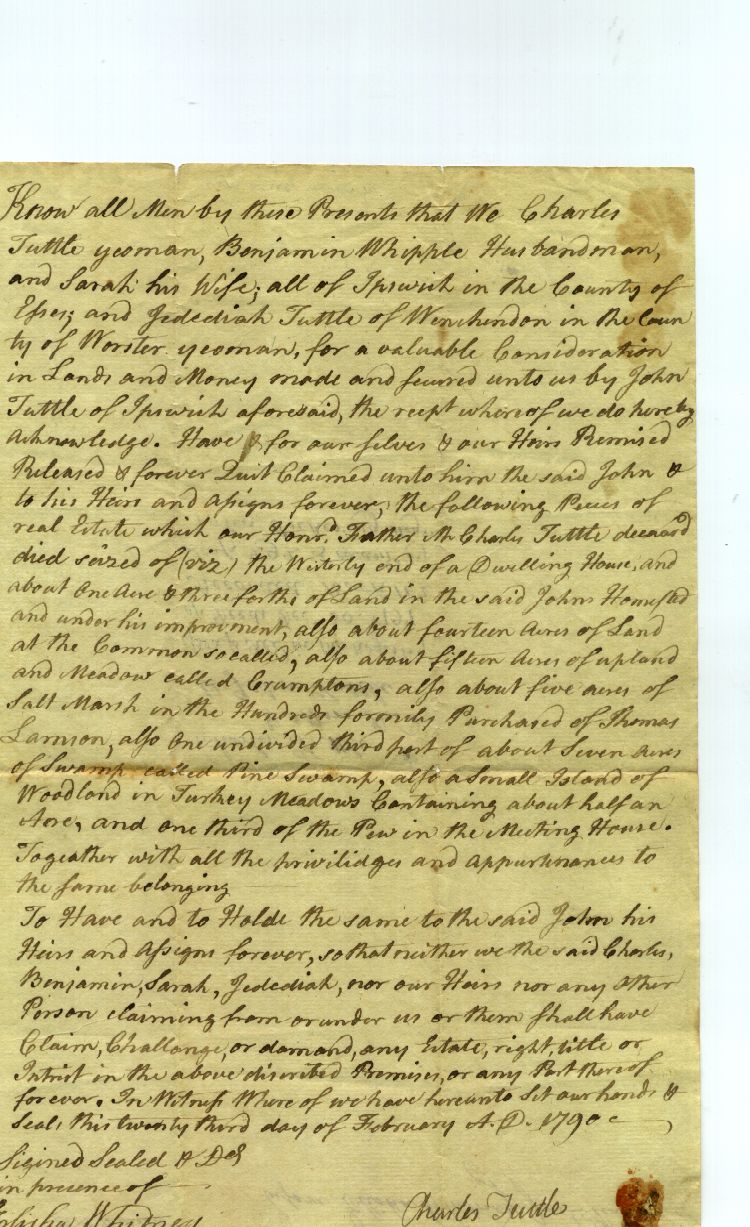 Know all Men by these Presents that We Charles
Tuttle yeoman, Benjamin Whipple Husbandman,
and Sarah his Wife; all of Ipswich in the County of
Essex; and Jedediah Tuttle of Winchendon in the Coun
ty of Worster yeoman, for a valuable Consideration
in Lands and Money made and secured unto us by John
Tuttle of Ipswich aforesaid, the recpt whereof we do hereby
Acknowledge. Have & for our selves & our Heirs Remised
Released & forever Quit Claimed unto him the said John &
to his Heirs and Assigns forever, the following Peces of
real Estate which our Honrd. Father Mr Charles Tuttle deceasd
died seized of (viz) the Westerly end of a Dwelling House, and
about One Acre & three forths of Land in the said Johns Homsted
and under his improvment, also about fourteen Acres of Land
at the Common so called, also about fifteen Acres of upland
and Meadow called Crumptons, also about five acres of
Salt Marsh in the Hundreds formily Purchased of Thomas
Lamson, also One undivided third part of about Seven Acres
of Swamp called Pine Swamp, also a Small Island of
Woodland in Turkey Meadows Containing about half an
Acre, and one third of the Pew in the Meeting House.
Togeather with all the privilidges and appurtinances to
the same belonging
To Have and to Holde the same to the said John his
Heirs and Assigns forever, so that neither we the said Charles,
Benjamin, Sarah, Jedediah, nor our Heirs nor any other
Person claiming from or under us or them shall have
Claim, Challange, or demand, any Estate, right, title or
Intrist in the above discribed Premises, or any Part thereof
forever. In Witness Where of we have hereunto Set our hands &
Seals this twenty third day of February A. D. 1790
Sigined Sealed & Deld
in presence of
Elisha Whitney
Charles Tuttle